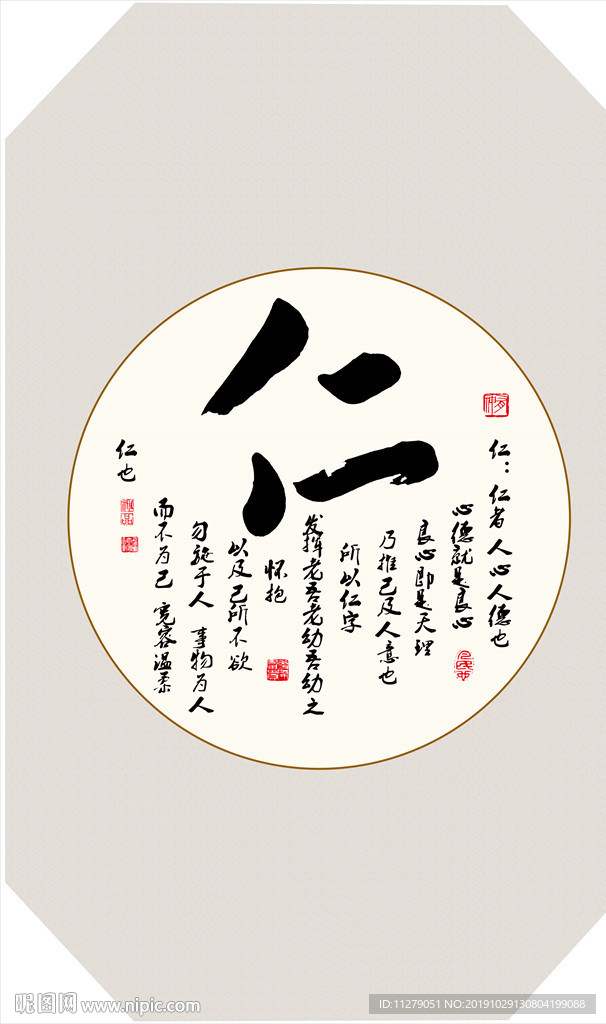 仁
仁：仁者人心人德也
心德就是良心
良心即是天理
乃推己及人意也
所以仁字
发挥老吾老幼吾幼之
怀抱
以及己所不欲
勿施于人 事物为人
而不为己 宽容温柔
仁也
昵图网 www.nipic.com
ID:11279051 NO:20191029130804199088